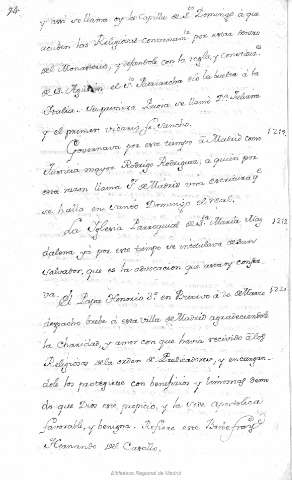 94
y assi se llama oy la Capilla de S.to Domingo à que
acuden los Religiosos comunm.te por estar dentro
del Monasterio, y
de S. Agustin el S.to Patriarcha dio la buelta à la
Italia. Su primera Priora se llamó D.a Juliana
y el primer vicario fr. Sancho.
Governava por este tiempo à Madrid como 1219
Justicia mayor Rodrigo Rodriguez, à quien por
esta razon llama J. de Madrid una escritura q.e
se halla en Santo Domingo el real,
La Iglesia Parroquial de S.ta Maria Mag 1219
dalena ya por este tiempo se intitulava de San
Salvador, que es la advocacion que aora conser
va.
El Papa Honorio 3.o en de Marzo 1220
despachó brebe à esta villa de Madrid agradeciendole
la Charidad, y amor con que havia recivido à los
Religiosos de la orden de Predicadores, y encargan-
dole los protegiese con beneficios y limosnas
do que Dios este propicio, y la sede Apostolica
favorable, y benigna. Refiere este Brebe fray
Hernando del Castillo.
Biblioteca Regional de Madrid